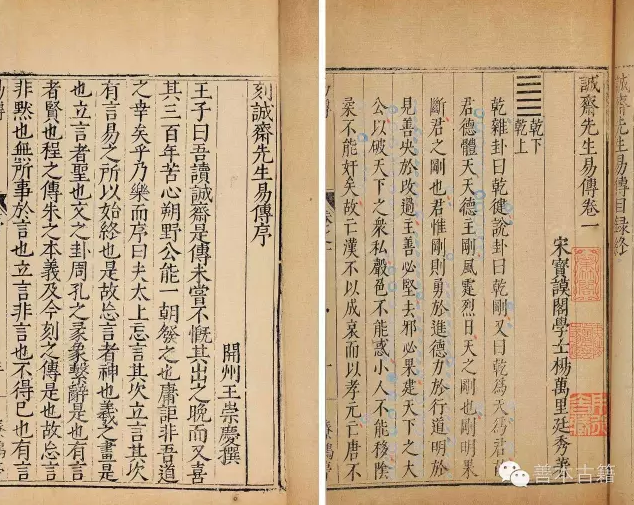 誠齋先生易傳目録終
誠齋先生易傳卷一
宋寶謨閣學士楊萬里廷秀
乾下
乾上
乾雜卦曰乾健說卦曰乾剛又曰乾爲天爲君故
君德體天天德主剛風霆烈日天之剛也剛明果
斷君之剛也君惟剛則勇於進德力於行道明於
見善決於改過主善必堅去邪必果建天下之大
公以破天下之衆私聲色不能惑小人不能移陰
柔不能奸矣故亡漢不以成哀而以孝元亡唐不
刻誠齋先生易傳序
開州王崇慶撰
王子曰吾讀誠齋是傳未嘗不慨其出之晚而又喜
其三百年苦心朔野公能一朝發之也庸詎非吾道
之幸矣乎乃樂而序曰夫太上忘言其次立言其次
有言易之所以始終也是故忘言者神也羲之畫是
也立言者聖也文之卦周孔之彖象繫辭是也有言
者賢也程之傳朱之本義及今刻之傳是也故忘言
非默也無所事於言也立言非言也不得已也有言
善本古籍